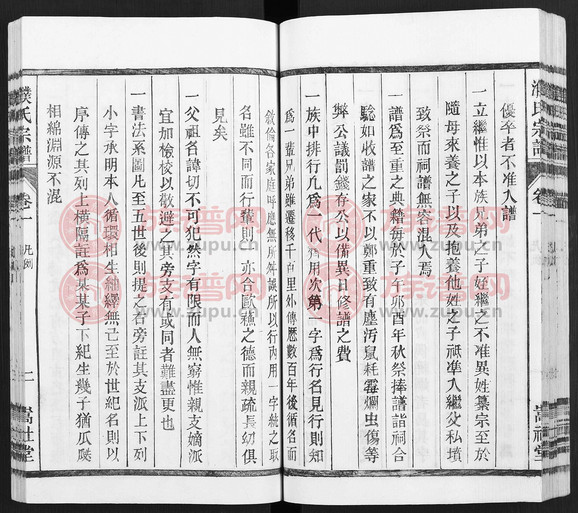 一優卒者不准入譜
一立繼惟以本族兄弟之子好繼之不准異姓纂宗至於
隨母來養之子以及抱養他姓之子祗准入繼父私墳
致祭而祠譜無容混入焉
一譜爲至重之典籍每於子午卯酉年秋祭捧譜詣祠合
驗如收譜之家不以鄭重致有塵汚鼠耗霉爛虫傷等
弊公議罰錢存公以備異日修譜之費
一族中排行凡爲一代須用次第一字爲行名見行則知
爲一輩兄弟雖遷移千百里外傳歷數百年後循名而
敘倫各家庭呼應無所舛誤所以行內用一字統之取
名雖不同而行輩則一亦合歐蘇之德而親疏長幼俱
見矣
一父祖名諱切不可犯然字有限而人無窮惟親支嫡派
宜加檢校以敬避之其旁支有或同者難盡更也
一書法系圖凡至五世後則提之右旁註其支派上下列
小字承明本人循環相生紬繹無己至於世紀名則以
序傳之其列上橫隔註爲某某子下紀生幾子猶瓜瓞
相綿淵源不混
濮氏宗譜
卷一
凡例
二
嵩祉堂
卷一
族谱网
www.zupu.cn
族谱网
www.zupu.cn
族谱网
www.zupu.cn
族谱网
www.zupu.cn